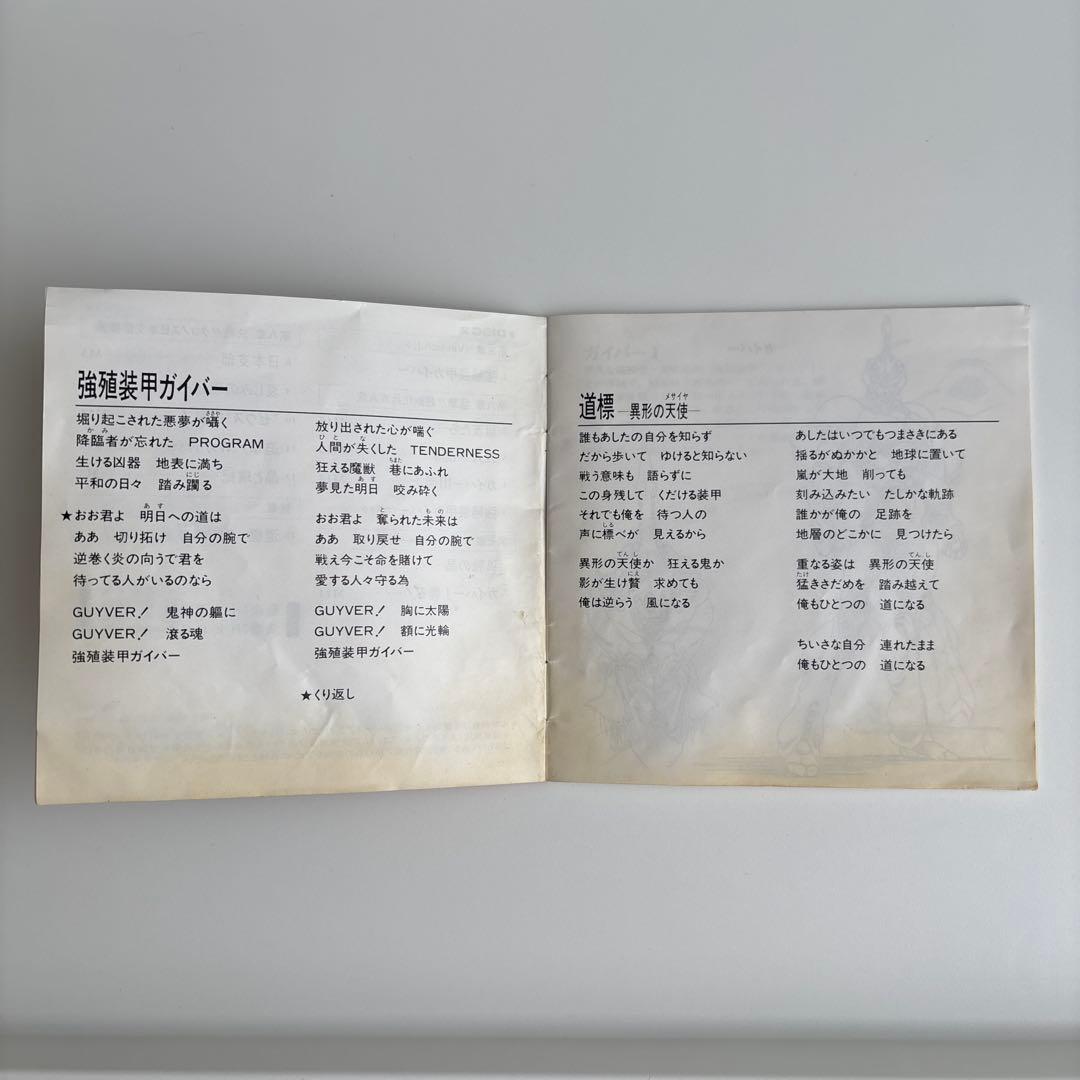 強殖装甲ガイバー
ささや
堀り起こされた悪夢が囁く
かみ
降臨者が忘れた PROGRAM
生ける凶器 地表に満ち
にじ
平和の日々 踏み躙る
あす
★おお君よ 明日への道は
ああ 切り拓け 自分の腕で
逆巻く炎の向うで君を
待ってる人がいるのなら
GUYVER! 鬼神の軀に
GUYVER! 滾る魂
強殖装甲ガイバー
放り出された心が喘ぐ
ひと な
人間が失くした TENDERNESS
ちまた
狂える魔獣 巷にあふれ
あす
夢見た明日 咬み砕く
と もの
おお君よ 奪られた未来は
ああ 取り戻せ 自分の腕で
戦え今こそ命を賭けて
愛する人々守る為
GUYVER! 胸に太陽
GUYVER! 額に光輪
強殖装甲ガイバー
★くり返し
メサイヤ
道標—異形の天使—
誰もあしたの自分を知らず
だから歩いて ゆけると知らない
戦う意味も 語らずに
この身残して くだける装甲
それでも俺を 待つ人の
しる
声に標べが 見えるから
てんし
異形の天使か 狂える鬼か
にえ
影が生け贄 求めても
俺は逆らう 風になる
あしたはいつでもつまさきにある
揺るがぬかかと 地球に置いて
嵐が大地 削っても
刻み込みたい たしかな軌跡
誰かが俺の 足跡を
地層のどこかに 見つけたら
てんし
重なる姿は 異形の天使
たけ
猛きさだめを 踏み越えて
俺もひとつの 道になる
ちいさな自分 連れたまま
俺もひとつの 道になる